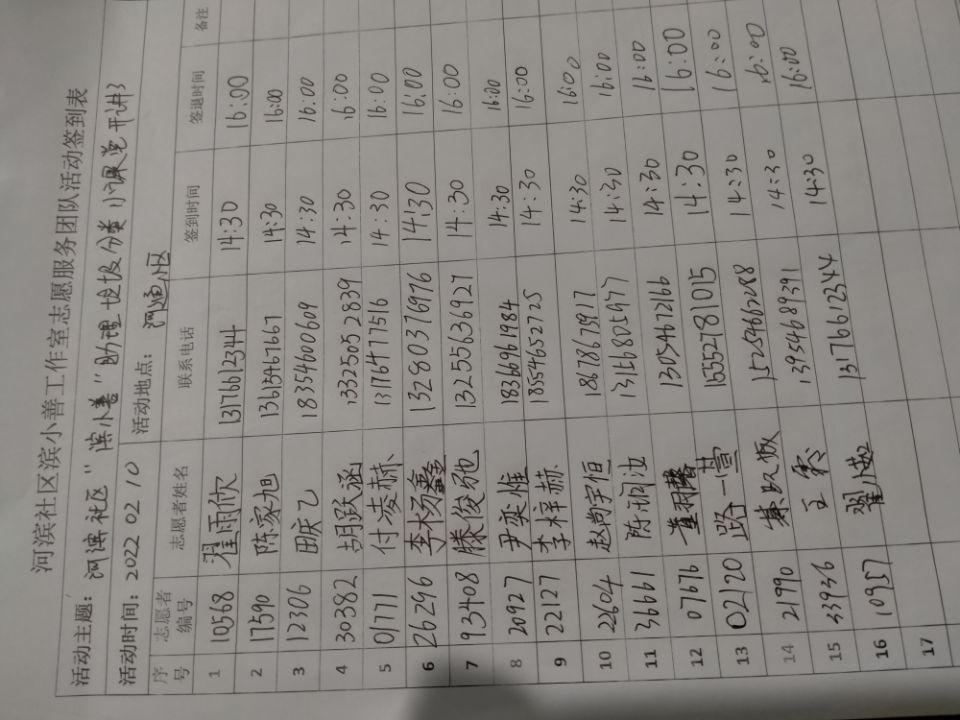 河滨社区滨小善工作室志愿服务团队活动签到表
活动主题：河滨社区"滨小善"助理垃圾分类小课堂开讲了
活动时间：2022 02 10 活动地点：河迪小区
序号 志愿者编号 志愿者姓名 联系电话 签到时间 签退时间 备注
1 10568 翟雨欣 13176612344 14:30 16:00
2 17590 陈家旭 13615467617 14:30 16:00
3 12306 田庆乙 18354600609 14:30 16:00
4 30382 胡跃涵 13325052839 14:30 16:00
5 01771 付凌赫 13176477516 14:30 16:00
6 26296 李杨鑫 13280376976 14:30 16:00
7 93408 滕俊驰 13255636927 14:30 16:00
8 20927 尹奕惟 18366961984 14:30 16:00
9 22127 李梓赫 18554652725 14:30 16:00
10 22604 赵尚宇恒 18678673917 14:30 16:00
11 36661 陈润汝 13168805977 14:30 16:00
12 07676 董羽馨 13054672166 14:30 16:00
13 02120 路一萱 15552781015 14:30 16:00
14 21990 15254662088 14:30 16:00
15 33936 王 13954689391 14:30 16:00
16 10957 翟小茹 13176612344 14:30 16:00
17